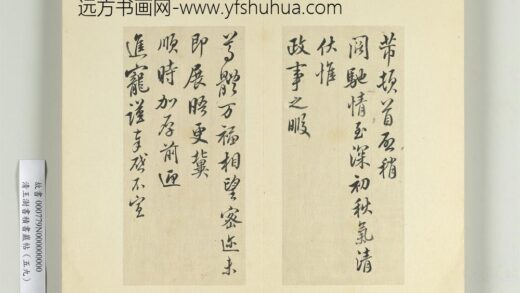 远方书画网-www.yfshuhua.com
芾頓首再稍
闊馳情至深初秋氣清
伏惟
政事之暇
尊體万福相望密迩未
即展晤更冀
順時加厚前迎
進寵謹奉啟不宣
故書 000779N000000000
清王澍書積書巖帖(五九)